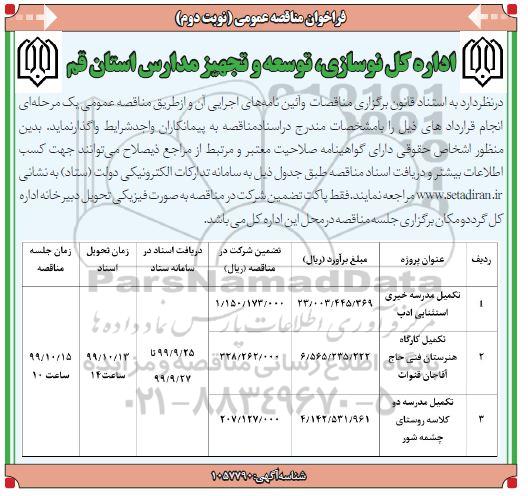 فراخوان مناقصه عمومی (نوبت دوم)
اداره کل نوسازی، توسعه و تجهیز مدارس استان قم
درنظردارد به استناد قانون برگزاری مناقصات وآئین نامه‌های اجرایی آن و ازطریق مناقصه عمومی یک مرحله‌ای
انجام قرارداد های ذیل را بامشخصات مندرج دراسنادمناقصه به پیمانکاران واجدشرایط واگذارنماید. بدین
منظور اشخاص حقوقی دارای گواهینامه صلاحیت معتبر و مرتبط از مراجع ذیصلاح می‌توانند جهت کسب
اطلاعات بیشتر و دریافت اسناد مناقصه طبق جدول ذیل به سامانه تدارکات الکترونیکی دولت (ستاد) به نشانی
www.setadiran.ir مراجعه نمایند. فقط پاکت تضمین شرکت در مناقصه به صورت فیزیکی تحویل دبیرخانه اداره
کل گردد ومکان برگزاری جلسه مناقصه درمحل این اداره کل می باشد.
ردیف عنوان پروژه مبلغ برآورد (ریال) تضمین شرکت در مناقصه (ریال) دریافت اسناد در سامانه ستاد زمان تحویل اسناد زمان جلسه مناقصه
۱ تکمیل مدرسه خیری استثنایی ادب ۲۳/۰۰۳/۴۴۵/۳۶۹ ۱/۱۵۰/۱۷۳/۰۰۰
۲ تکمیل کارگاه هنرستان فنی حاج آقاجان قنوات ۶/۵۶۵/۲۳۵/۲۲۲ ۳۲۸/۲۶۲/۰۰۰ ۹۹/۹/۲۵ تا ۹۹/۹/۲۷ ۹۹/۱۰/۱۳ ساعت ۱۴ ۹۹/۱۰/۱۵ ساعت ۱۰
۳ تکمیل مدرسه دو کلاسه روستای چشمه شور ۴/۱۴۲/۵۳۱/۹۶۱ ۲۰۷/۱۲۷/۰۰۰
ParsNamadData
مرکز فرآوری اطلاعات پارس نماد داده‌ها
پایگاه اطلاع رسانی مناقصه و مزایده
۰۲۱-۸۸۳۴۹۶۷۰-۵
شناسه آگهی: ۱۰۵۷۷۹۰